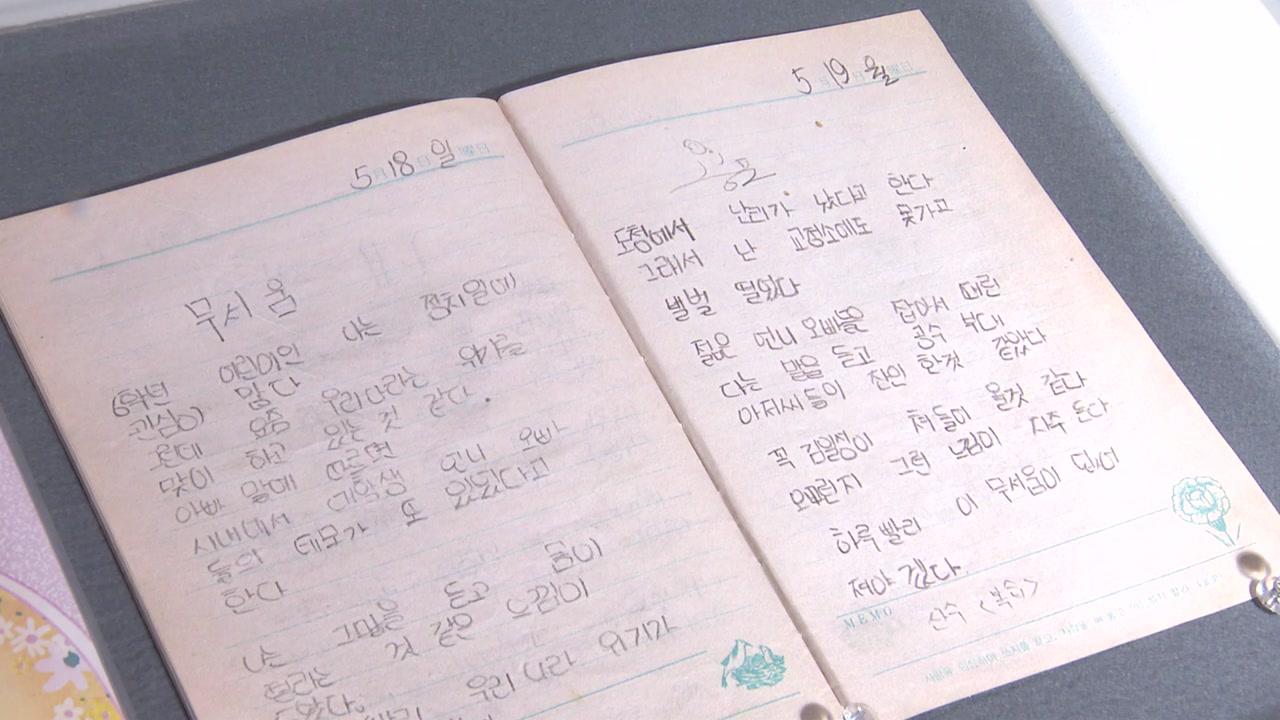 5月 18日 일 曜日
무서움
6학년 어린이인 나는 정치일에
관심이 많다
요즘 우리나라는 위기를
맞이 하고 있는 것 같다.
아빠 말에 따르면
시내에서 대학생 언니 오빠
들의 데모가 또 있었다고
한다
나는 그말을 듣고 몸이
떨리는 것 같은 느낌이
들었다.
우리 나라 위기가
5月 19日 월 曜日
공포
도청에서 난리가 났다고 한다
그래서 난 교정소에도 못가고
벌벌 떨었다
젊은 언니 오빠들을 잡아서 때린
다는 말을 듣고 공수 부대
아저씨들이 잔인 한것 같았다
꼭 김일성이 쳐들어 올것 같다
오래런지 그런 느낌이 자주 든다
하루빨리 이 무서움이 없어
져야 겠다.
MEMO
산수 <복습>